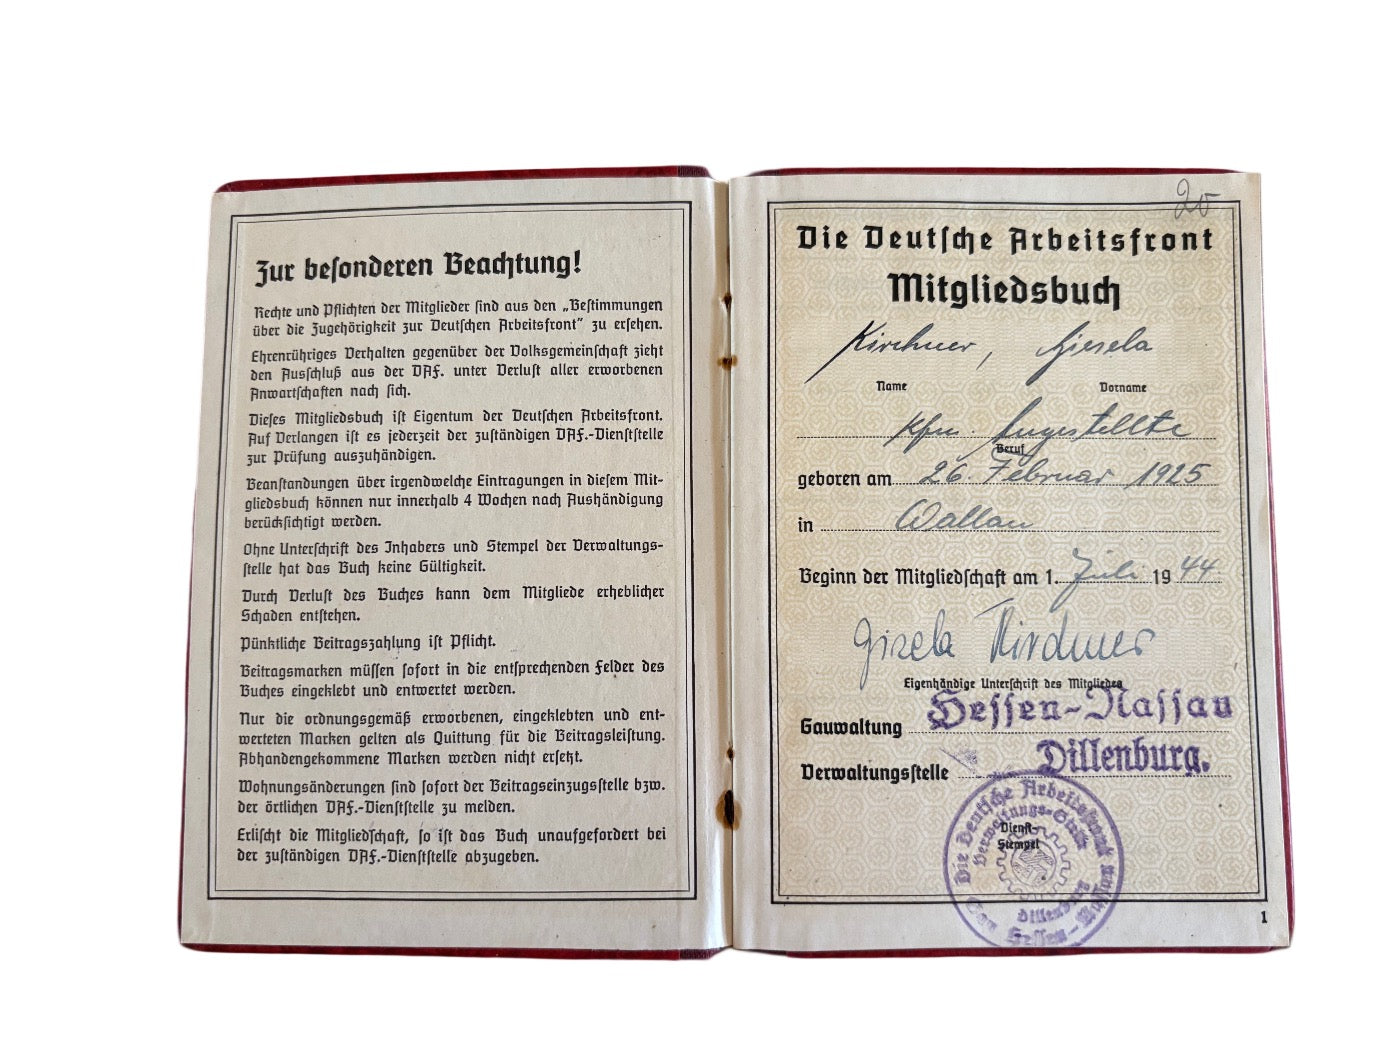 Zur besonderen Beachtung!
Rechte und Pflichten der Mitglieder sind aus den „Bestimmungen
über die Zugehörigkeit zur Deutschen Arbeitsfront" zu ersehen.
Ehrenrühriges Verhalten gegenüber der Volksgemeinschaft zieht
den Ausschluß aus der DAF. unter Verlust aller erworbenen
Anwartschaften nach sich.
Dieses Mitgliedsbuch ist Eigentum der Deutschen Arbeitsfront.
Auf Verlangen ist es jederzeit der zuständigen DAF.-Dienststelle
zur Prüfung auszuhändigen.
Beanstandungen über irgendwelche Eintragungen in diesem Mit-
gliedsbuch können nur innerhalb 4 Wochen nach Aushändigung
berücksichtigt werden.
Ohne Unterschrift des Inhabers und Stempel der Verwaltungs-
stelle hat das Buch keine Gültigkeit.
Durch Verlust des Buches kann dem Mitgliede erheblicher
Schaden entstehen.
Pünktliche Beitragszahlung ist Pflicht.
Beitragsmarken müssen sofort in die entsprechenden Felder des
Buches eingeklebt und entwertet werden.
Nur die ordnungsgemäß erworbenen, eingeklebten und ent-
werteten Marken gelten als Quittung für die Beitragsleistung.
Abhandengekommene Marken werden nicht ersetzt.
Wohnungsänderungen sind sofort der Beitragseinzugsstelle bzw.
der örtlichen DAF.-Dienststelle zu melden.
Erlischt die Mitgliedschaft, so ist das Buch unaufgefordert bei
der zuständigen DAF.-Dienststelle abzugeben.
Die Deutsche Arbeitsfront
Mitgliedsbuch
Kirchner, Giesela
Name Vorname
Kfm. Angestellte
Beruf
geboren am 26. Februar 1925
in Wallau
Beginn der Mitgliedschaft am 1. Juli 1944
Gisela Kirchner
Eigenhändige Unterschrift des Mitgliedes
Gauwaltung Hessen-Nassau
Verwaltungsstelle Dillenburg.
Die Deutsche Arbeitsfront
Verwaltungs-Stelle
Dienst-
Stempel
Dillenburg
Gau Hessen-Nassau
1